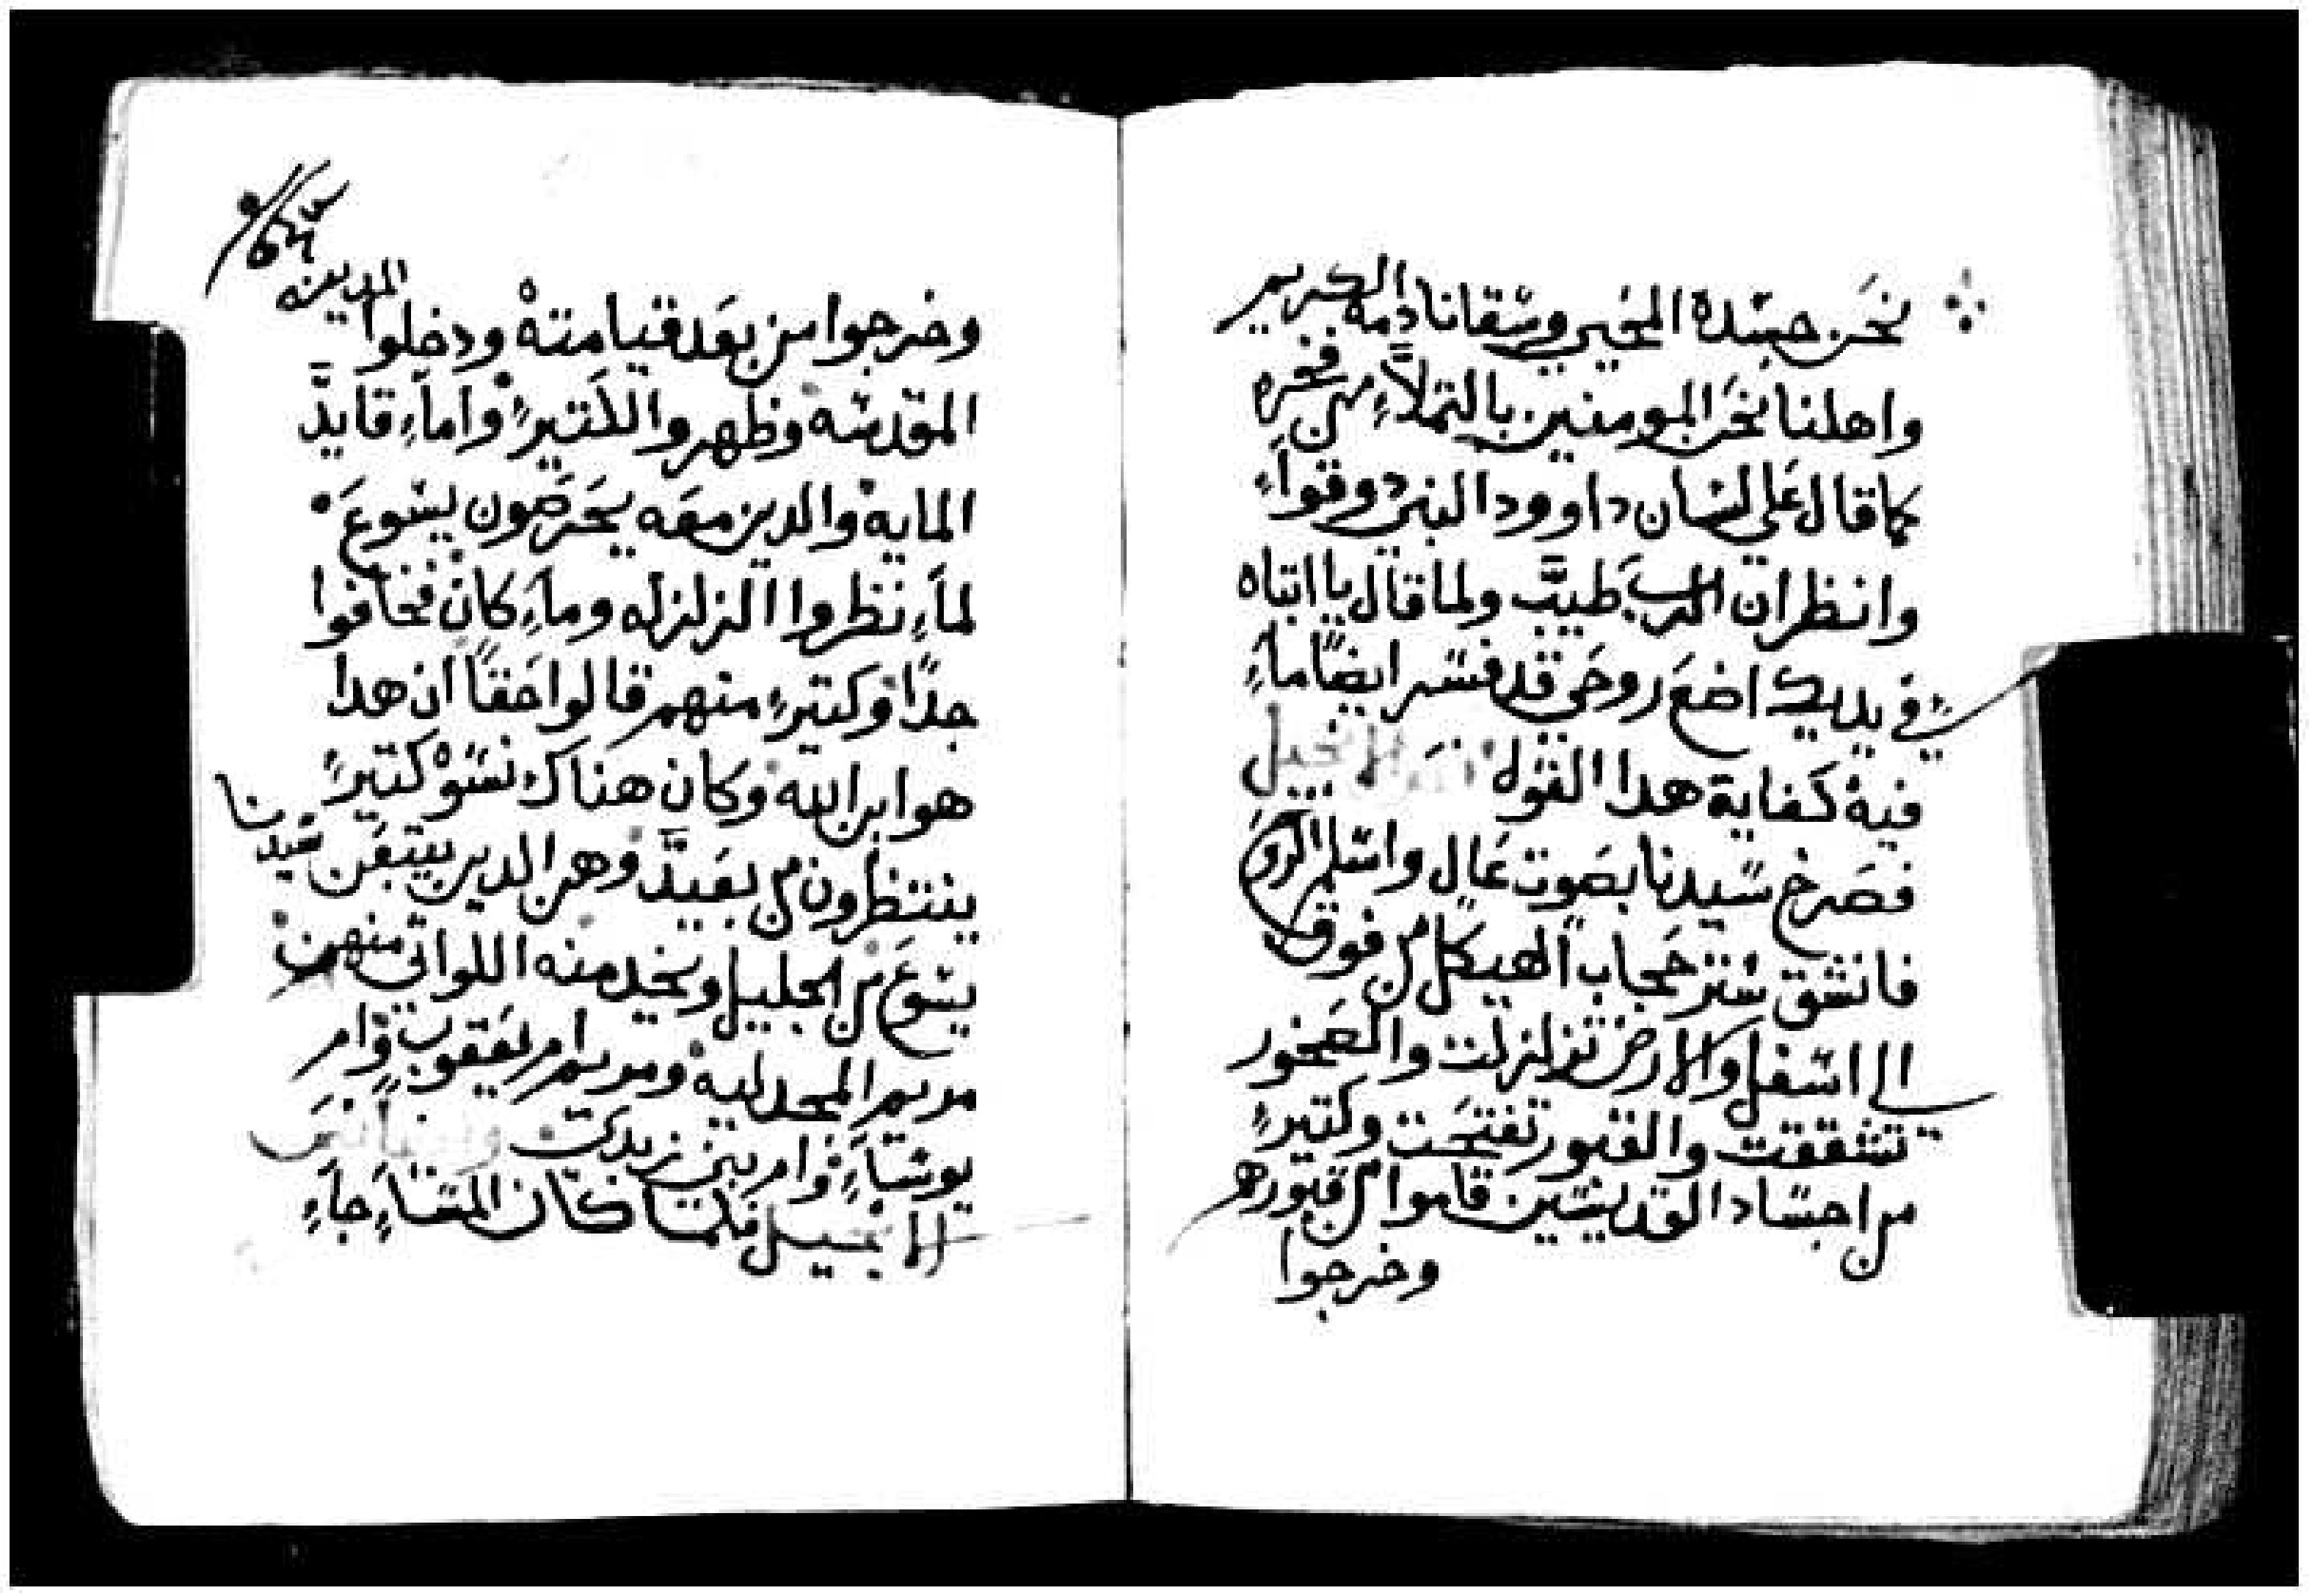 نحن جسده المحيي وسقانا دمه الكريم
واهلنا نحن المومنين بالتملاء من فخره
كما قال على لسان داوود النبي دوقوا
وانظر ان الرب طيب ولما قال يا ابتاه
في يديك اضع روحي قد فسر ايضا ماء
فيه كفاية هدا القول
فصرخ سيدنا بصوت عال واسلم الروح
فانشق ستر حجاب الهيكل من فوق
الى اسفل والارض تزلزلت والصخور
تشققت والقبور تفتحت وكتير
من اجساد القديسين قاموا من قبورهم
وخرجوا
المدينه
وخرجوا من بعد قيامته ودخلوا
المقدسه وظهروا لكتير واماء قايد
المايه والدين معه يحرصون يسوع
لماء نظروا الزلزله وماء كان فخافوا
جدا وكتير منهم قالوا حقا ان هدا
هو ابن الله وكان هناك نسو كتير
ينتظرون من بعيد وهن الدين يتبعن سيدنا
يسوع من الجليل ويخدمنه اللواتي منهن
مريم المجدليه ومريم ام يعقوب وام
يوساء وام بني زبدي
الانجيل فلما كان المساء جاء